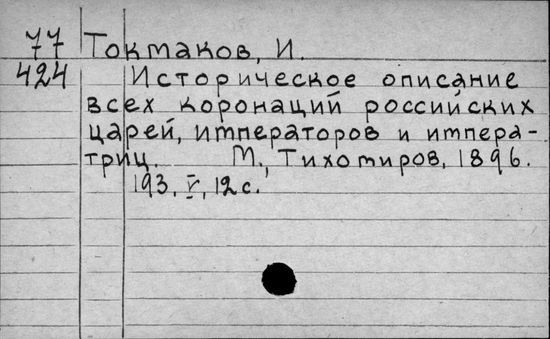 77 Токмаков, И.
424 Историческое описание
всех коронаций российских
царей, императоров и импера-
триц. М., Тихомиров, 1896.
193, V, 12 с.